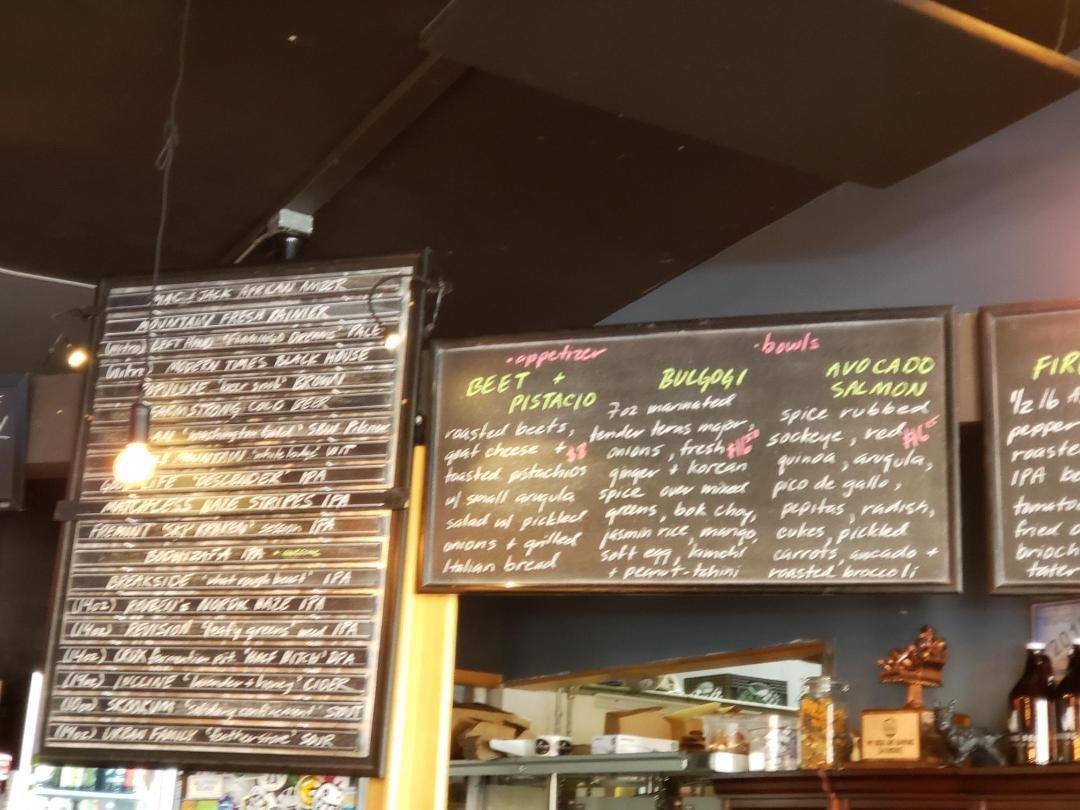 MAC & JACK AFRICAN AMBER
MOUNTAIN FRESH RAINIER
(nitro) LEFT HAND "FLAMINGO DREAMS" PALE
(nitro) MODERN TIMES BLACK HOUSE
BROWN
FARMSTRONG COLD BEER
"washington gold" Pilsner
MOUNTAIN "white lady" WIT
LIFE "DESCENDER" IPA
MATCHLESS IPA
FREMONT "SKY KRAKEN" IPA
BODHIZAFA IPA
BREAKSIDE "what rough beast" IPA
(14oz) REUBEN'S NORDIK HAZE IPA
(14oz) REVISION "leafy greens" IPA
(14oz) CRUX fermentation prjt "HALF HITCH" DPA
INCLINE "lavender + honey" CIDER
(10oz) SKOOKUM "solitary confinement" STOUT
(14oz) URBAN FAMILY SOUR
·appetizer
BEET +
PISTACIO
roasted beets,
goat cheese + $8
toasted pistachios
w/ small arugula
salad w/ pickled
onions + grilled
Italian bread
·bowls
BULGOGI
7oz marinated
tender teras major,
onions, fresh
ginger + korean
spice over mixed
greens, bok choy,
jasmin rice, mango,
soft egg, kimchi
+ peanut-tahini
AVOCADO
SALMON
spice rubbed
sockeye, red
quinoa, arugula,
pico de gallo,
pepitas, radish,
cukes, pickled
carrots, avocado +
roasted broccoli
FIR
1/2 lb A
pepper
roaste
IPA be
tomato
fried o
brioch
tater